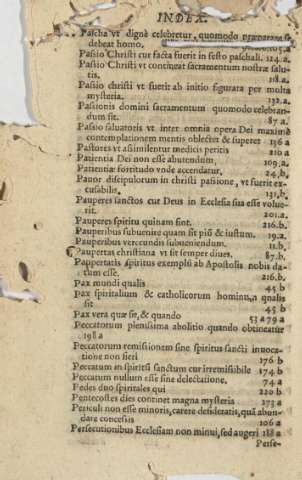 INDEX.
Pascha vt dignè celebretur, quomodo præparare se
debeat homo.
Passio Christi cur facta fuerit in festo paschali. 124.a.
Passio Christi vt contineat sacramentum nostræ salu-
tis. 118.a.
Passio christi vt fuerit ab initio figurata per multa
mysteria. 132.a.
Passionis domini sacramentum quomodo celebran-
dum sit. 87 a.
Passio saluatoris vt inter omnia opera Dei maximè
contemplationem mentis oblectet & superet 136 a
Pastores vt assimilentur medicis peritis 210 a
Patientia Dei non esse abutendum, 109.a.
Patientiæ fortitudo vnde accendatur, 24.b,
Pauor discipulorum in christi passione, vt fuerit ex-
cusabilis. 131.b.
Pauperes sanctos cur Deus in Ecclesia sua esse volue-
rit. 201.a.
Pauperes spiritu quinam sint. 216.b.
Pauperibus subuenire quam sit piũ & iustum. 19.a.
Pauperibus verecundis subueniendum. 11.b.
Paupertas christiana vt sit semper diues. 87.b.
Paupertatis spiritus exemplũ ab Apostolis nobis da-
tum esse. 216.b,
Pax mundi qualis 45 b
Pax spiritalium & catholicorum hominũ, qualis
sit 45 b
Pax vera quæ sit, & quando 53 a 79 a
Peccatorum plenissima abolitio quando obtineatur
198 a
Peccatorum remissionem sine spiritus sancti inuoca-
tione non fieri 176 b
Peccatum in spiritũ sanctum cur irremisibile 174 b
Peccatum nullum esse sine delectatione, 74 a
Pedes duo spiritales qui 220 b
Pentecostes dies continet magna mysteria 173 a
Periculi non esse minoris, carere desideratis, quã abun-
dare concessis 106 a
Persecutionibus Ecclesiam non minui, sed augeri 188 a
Perse-